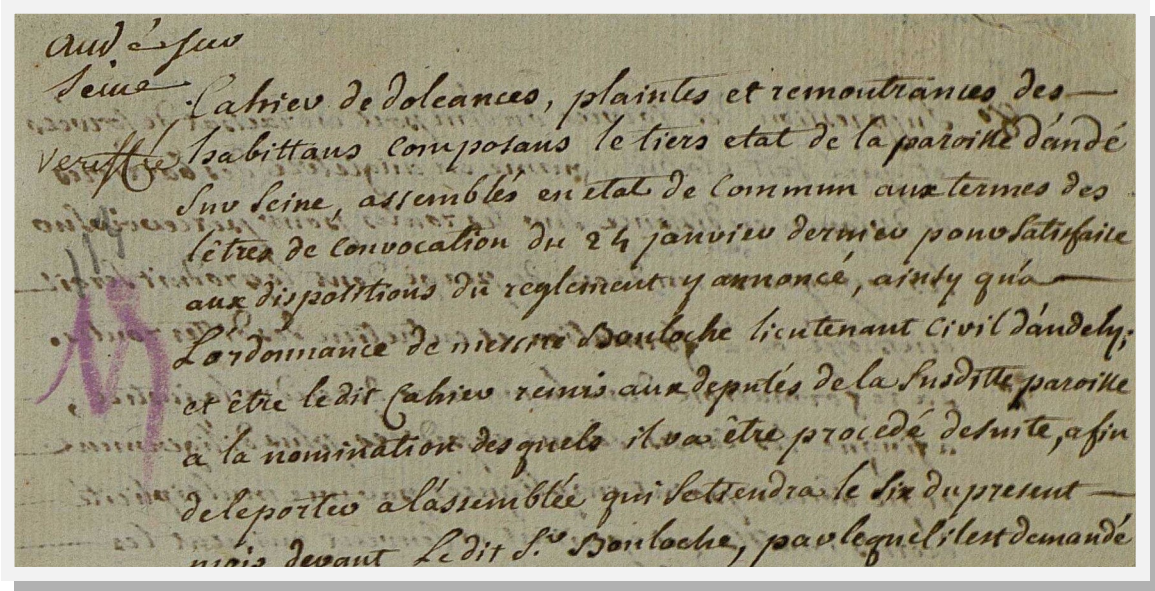 Andé sur
Seine
Veriffié
Cahier de doleances, plaintes et remontrances des
habittans composans le tiers etat de la paroisse d'andé
sur Seine, assemblés en etat de Commun aux termes des
lêtres de convocation du 24 janvier dernier pour satisfaire
aux dispositions du reglement y annoncé, ainsy qu'a
L'ordonnance de messire Bouloche lieutenant Civil d'andely;
et être ledit Cahier remis aux deputés de la susditte paroisse
a la nomination desquels il va être procédé desuite, afin
de le porter a l'assemblée qui se tiendra le six du present
mois devant Ledit S.r Bouloche, par lequel il est demandé